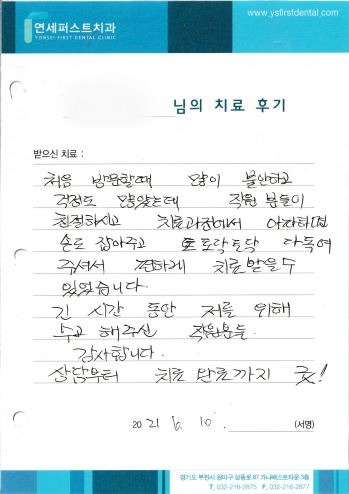 연세퍼스트치과
YONSEI FIRST DENTAL CLINIC
www.ysfirstdental.com
님의 치료 후기
받으신 치료 :
처음 방문할때 많이 불안하고
걱정도 많았는데 직원 분들이
친절하시고 치료과정에서 아파하면
손도 잡아주고 토닥토닥 다독여
주셔서 편하게 치료받을수
있었습니다.
긴 시간 동안 저를 위해
수고 해주신 직원분들
감사합니다.
상담부터 치료 완료까지 굿!
2021 6. 10. (서명)
경기도 부천시 원미구 상동로 87 가나베스트타운 3층
T. 032-216-2875 F. 032-216-2877